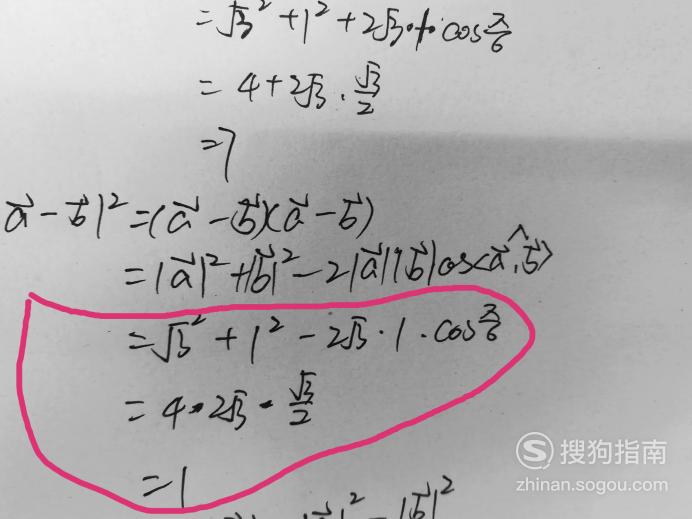 =√3² + 1² + 2√3·1·cosπ/6
= 4 + 2√3 · √3/2
= 7
a⃗ - b⃗|² = (a⃗ - b⃗)(a⃗ - b⃗)
= |a⃗|² + |b⃗|² - 2|a⃗||b⃗|cos<a⃗,b⃗>
= √3² + 1² - 2√3 · 1 · cosπ/6
= 4 - 2√3 · √3/2
= 1
|² - |b⃗|²
搜狗指南
zhinan.sogou.com